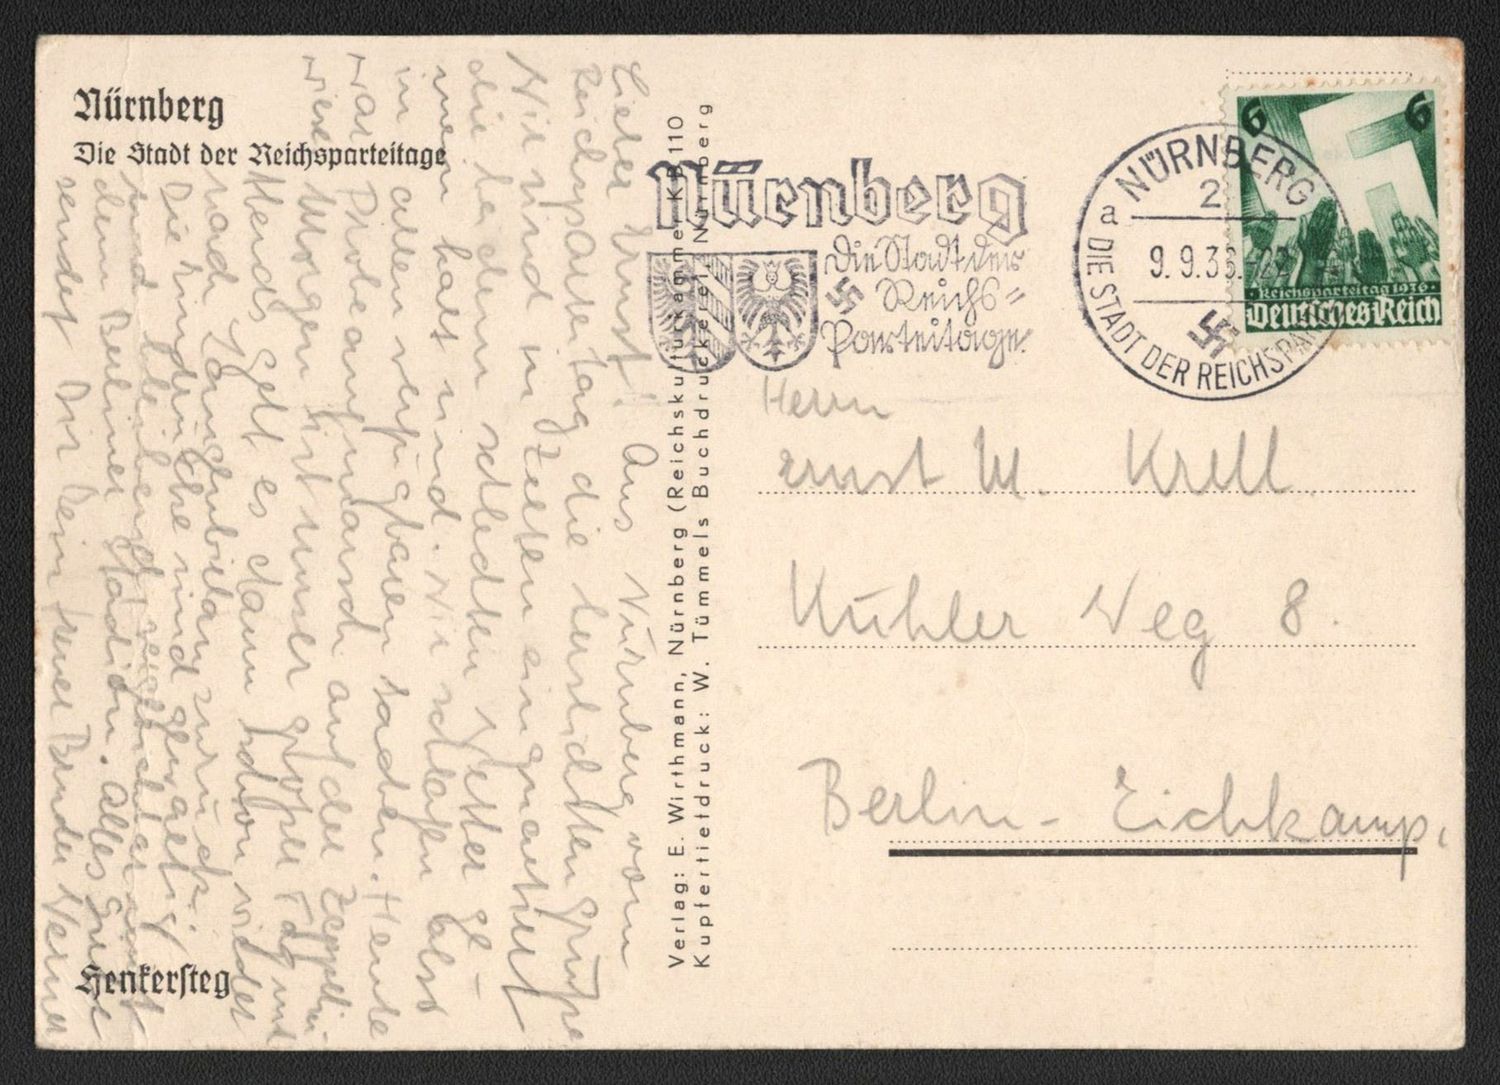 Nürnberg
Die Stadt der Reichsparteitage
Henkersteg
Lieber Ernst! Aus Nürnberg vom
Reichsparteitag die herzlichsten Grüße
Wir sind in Zelten einquartiert
die bei dem schlechten Wetter ge-
men kalt sind. Wir schlafen also
in allen verfügbaren Sachen. Heute
war Probeaufmarsch auf der Zeppelin-
wiese Morgen ist unser großer Tag und
Abends geht es dann schon wieder
nach zurück.
Die Eindrücke sind gewaltig
und bleibend
dem Berliner Stadion. Alles Gute
sendet Dir Dein treuer Bruder Werner
Verlag: E. Wirthmann, Nürnberg (Reichskulturkammer KB 110
Kupfertiefdruck: W. Tümmels Buchdruckerei Nürnberg
Nürnberg
Die Stadt der
Reichs=
Parteitage.
NÜRNBERG
2
a
9.9.36.-22
DIE STADT DER REICHSPAR
6 6
Reichsparteitag 1936
Deutsches Reich
Herrn
Ernst W. Krell.
Kühler Weg 8.
Berlin - Eichkamp.